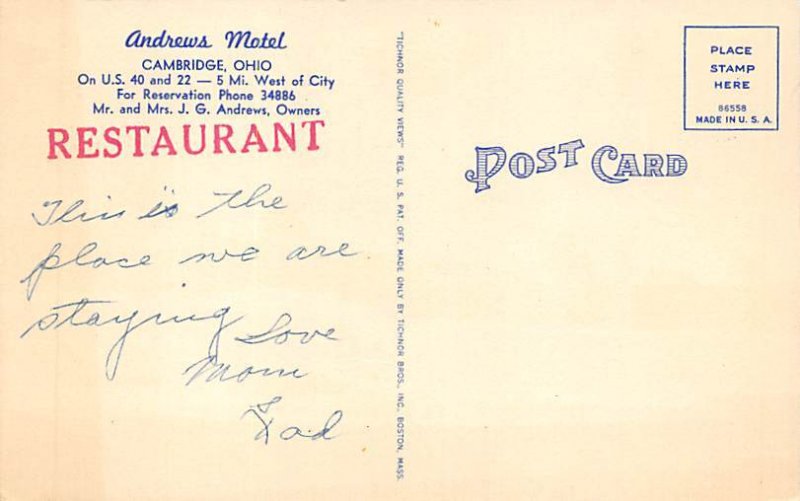 Andrews Motel
CAMBRIDGE, OHIO
On U.S. 40 and 22 — 5 Mi. West of City
For Reservation Phone 34886
Mr. and Mrs. J. G. Andrews, Owners
RESTAURANT
This is the
place we are
staying Love
Mom
& Dad
"TICHNOR QUALITY VIEWS" REG. U. S. PAT. OFF. MADE ONLY BY TICHNOR BROS., INC., BOSTON, MASS.
POST CARD
PLACE
STAMP
HERE
86558
MADE IN U. S. A.